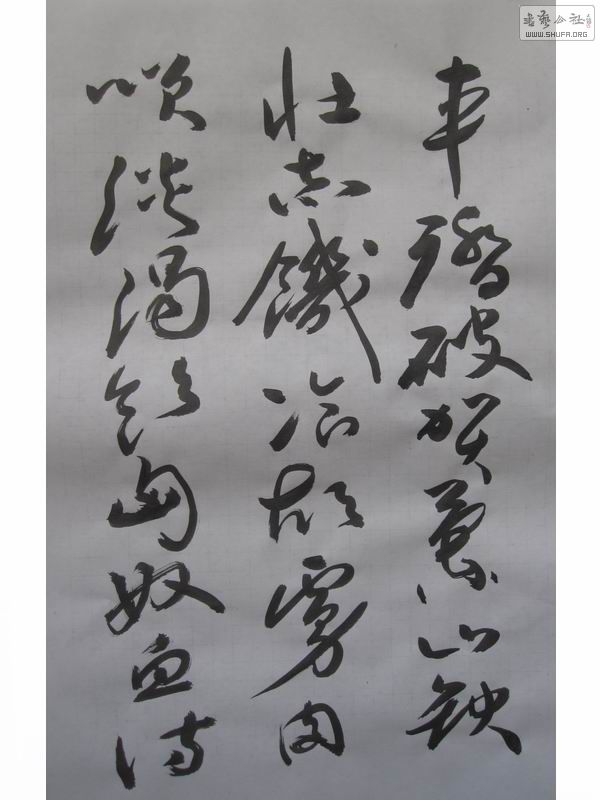 車踏破贺蘭山缺
壮志饑飡胡虜肉
咲談渴飲匈奴血待
書藝公社
WWW.SHUFA.ORG